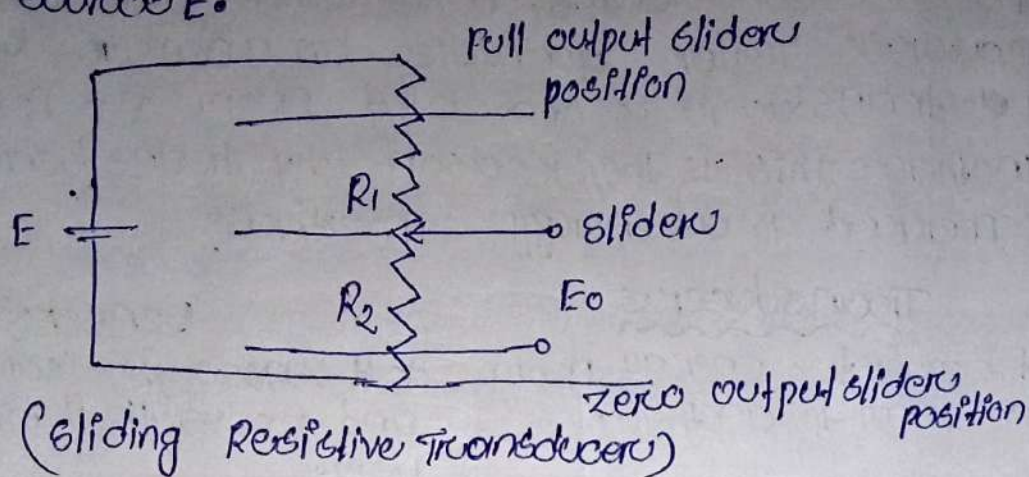 Full output slider
position
R1
E
slider
R2
Eo
zero output slider
position
(Sliding Resistive Transducer)